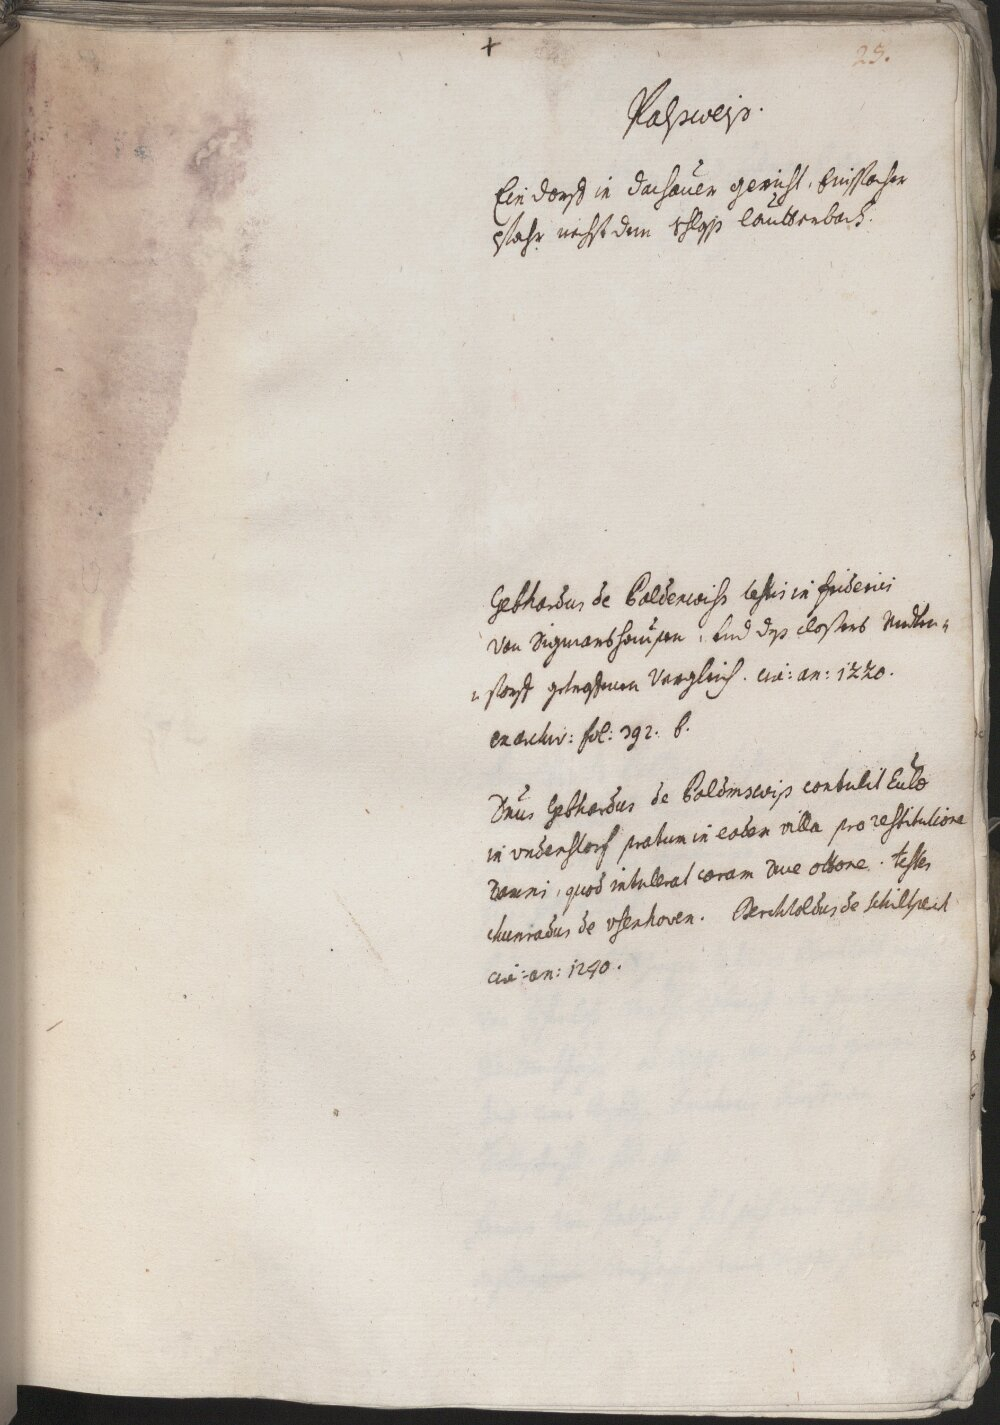 +
25.
Palsweiß.
Ein dorff in dachauer gericht, Einspacher
pfahr nechst dem schloß lauttenbach.
Gebhardus de Balderwiss testis in friderici
von Sigmarshausen, und deß closters Under=
=storff getroffnen Vergleich. circ: an: 1220.
ex archiv: fol: 392. b.
Dnus Gebhardus de Baldmswiß contulit Eccl
in understorf pratum in eadem villa pro restitutione
damni, quod intulerat coram Duce ottone. testes
chunradus de usenhoven. Berchtoldus de schiltpach
circ: an: 1240.